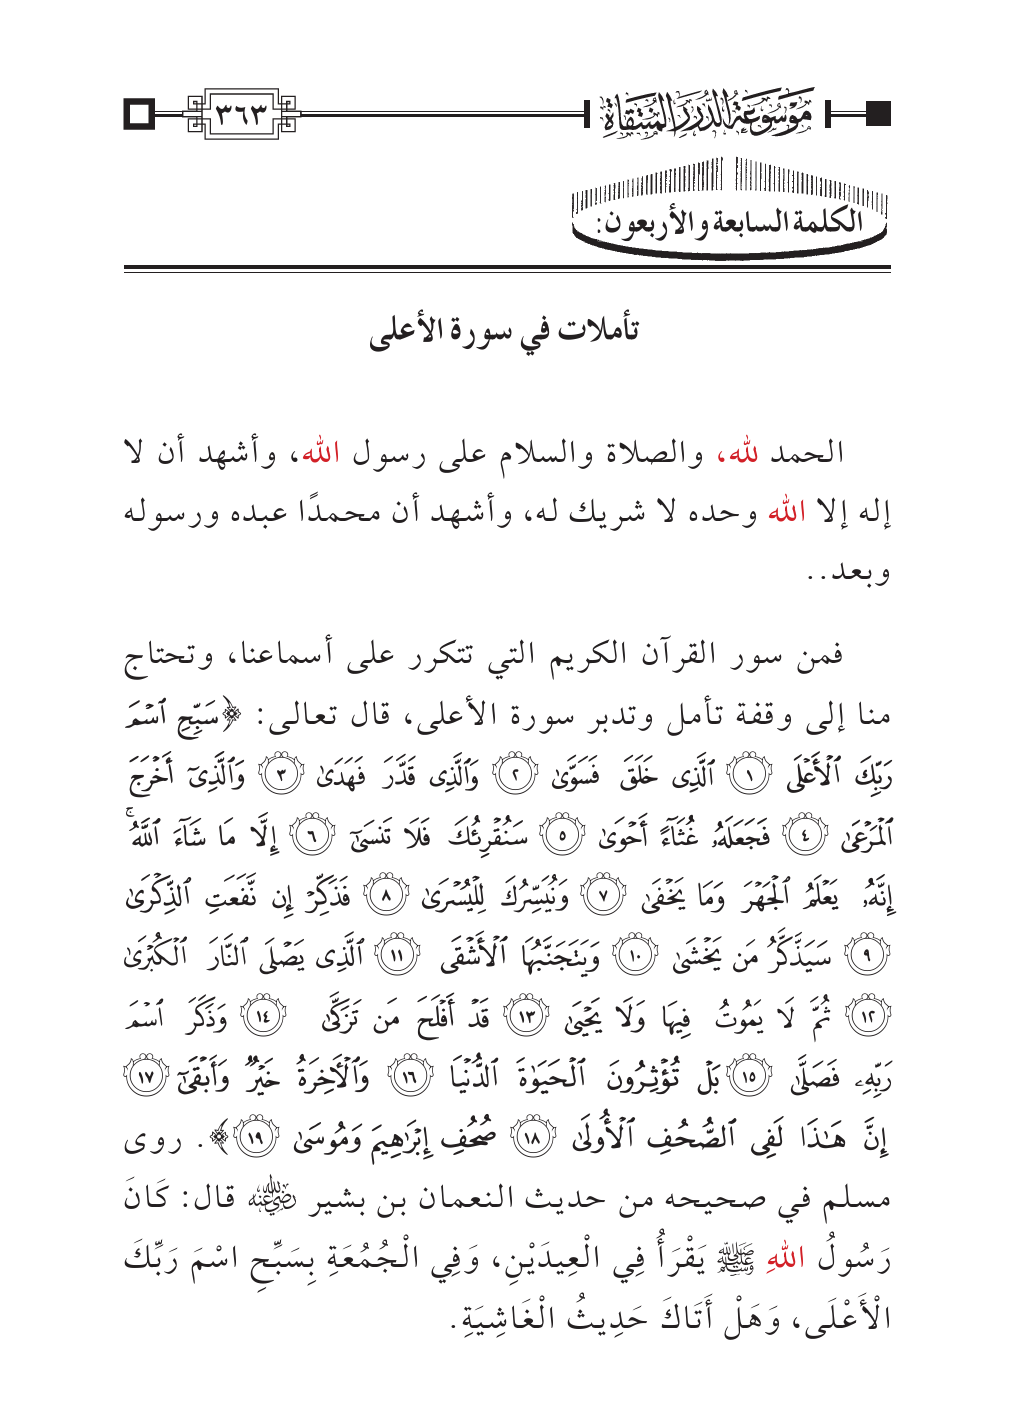 موسوعة الدرر المنتقاة
٣٦٣
الكلمة السابعة والأربعون:
تأملات في سورة الأعلى
الحمد لله، والصلاة والسلام على رسول الله، وأشهد أن لا
إله إلا الله وحده لا شريك له، وأشهد أن محمدًا عبده ورسوله
وبعد..
فمن سور القرآن الكريم التي تتكرر على أسماعنا، وتحتاج
منا إلى وقفة تأمل وتدبر سورة الأعلى، قال تعالى: ﴿سَبِّحِ ٱسۡمَ
رَبِّكَ ٱلۡأَعۡلَى ١ ٱلَّذِي خَلَقَ فَسَوَّىٰ ٢ وَٱلَّذِي قَدَّرَ فَهَدَىٰ ٣ وَٱلَّذِيٓ أَخۡرَجَ
ٱلۡمَرۡعَىٰ ٤ فَجَعَلَهُۥ غُثَآءً أَحۡوَىٰ ٥ سَنُقۡرِئُكَ فَلَا تَنسَىٰٓ ٦ إِلَّا مَا شَآءَ ٱللَّهُۚ
إِنَّهُۥ يَعۡلَمُ ٱلۡجَهۡرَ وَمَا يَخۡفَىٰ ٧ وَنُيَسِّرُكَ لِلۡيُسۡرَىٰ ٨ فَذَكِّرۡ إِن نَّفَعَتِ ٱلذِّكۡرَىٰ
٩ سَيَذَّكَّرُ مَن يَخۡشَىٰ ١٠ وَيَتَجَنَّبُهَا ٱلۡأَشۡقَى ١١ ٱلَّذِي يَصۡلَى ٱلنَّارَ ٱلۡكُبۡرَىٰ
١٢ ثُمَّ لَا يَمُوتُ فِيهَا وَلَا يَحۡيَىٰ ١٣ قَدۡ أَفۡلَحَ مَن تَزَكَّىٰ ١٤ وَذَكَرَ ٱسۡمَ
رَبِّهِۦ فَصَلَّىٰ ١٥ بَلۡ تُؤۡثِرُونَ ٱلۡحَيَوٰةَ ٱلدُّنۡيَا ١٦ وَٱلۡأٓخِرَةُ خَيۡرٞ وَأَبۡقَىٰٓ ١٧
إِنَّ هَٰذَا لَفِي ٱلصُّحُفِ ٱلۡأُولَىٰ ١٨ صُحُفِ إِبۡرَٰهِيمَ وَمُوسَىٰ ١٩﴾. روى
مسلم في صحيحه من حديث النعمان بن بشير رضي الله عنه قال: كَانَ
رَسُولُ اللهِ ﷺ يَقْرَأُ فِي الْعِيدَيْنِ، وَفِي الْجُمُعَةِ بِسَبِّحِ اسْمَ رَبِّكَ
الْأَعْلَى، وَهَلْ أَتَاكَ حَدِيثُ الْغَاشِيَةِ.